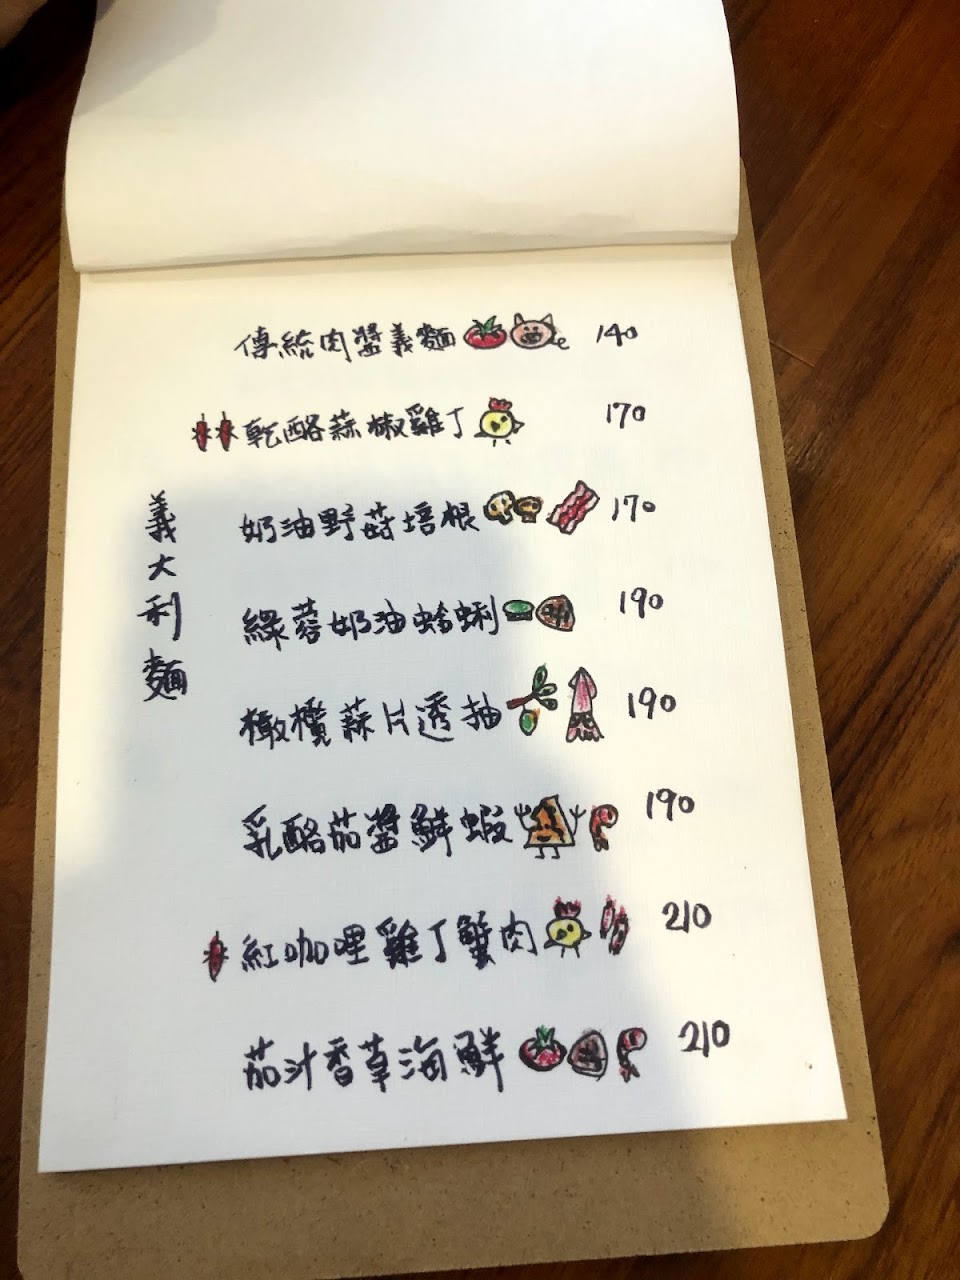 義大利麵
傳統肉醬義麵 140
乾酪蒜椒雞丁 170
奶油野菇培根 170
綠蓉奶油蛤蜊 190
橄欖蒜片透抽 190
乳酪茄醬鮮蝦 190
紅咖哩雞丁蟹肉 210
茄汁香草海鮮 210